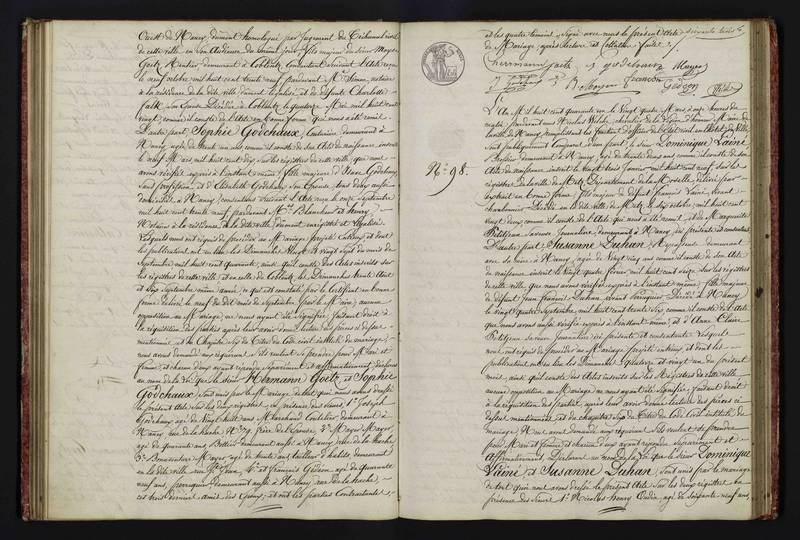 Ouest de Nancy, dûment homologué par Jugement du Tribunal civil
de cette ville en son Audience du même jour, fils majeur du Sieur Moyse
Goetz Rentier, demeurant à Coblentz, consentant suivant Acte reçu
le neuf octobre mil huit cent trente neuf pardevant Me Simon, notaire
à la résidence de la dite ville dûment légalisé, et de défunte Charlotte
falk, son Epouse Décédée à Coblentz le quatorze Mai mil huit cent
vingt, comme il conste de l'Acte en bonne forme qui nous a été remis.
D'autre part Sophie Godchaux, Couturière, demeurant à
Nancy, agée de trente un ans comme il conste de son Acte de naissance inscrit
le neuf Mars, mil huit cent dix sur les registres de cette ville, que nous
avons vérifié exprès à l'instant même; fille majeure d'Isaac Godchaux,
Sans profession et d'Elisabeth Godchaux Son Epouse, tous deux aussi
domiciliés à Nancy, consentans suivant l'Acte reçu le onze Septembre
mil huit cent trente neuf, pardevant Me Blanchard et henry,
Notaires à la résidence de la dite ville, dûment enrégistré et légalisé.
Lesquels nous ont requis de procéder au Mariage projeté entr'eux et dont
les publications ont eu lieu les Dimanches Vingt et vingt sept du mois de
Septembre mil huit cent quarante, ainsi qu'il conste des Actes inscrits sur
les registres de cette ville et en celle de Coblentz les Dimanches trente Août
et Six Septembre même année, ce qui est constaté par le Certificat en bonne
forme délivré le neuf du dit mois de Septembre par le Maire, aucune
opposition au Mariage ne nous ayant été signifiée, faisant droit à
la réquisition des parties après leur avoir donné lecture des pièces ci dessus
mentionnées et du Chapitre Six du Titre du Code civil intitulé du mariage,
nous avons demandé aux requérans s'ils veulent se prendre pour Mari et
femme, et chacun d'eux ayant répondu séparément et affirmativement, déclarons
au nom de la loi que le Sieur Hermann Goetz et Sophie
Godchaux sont unis par le Mariage de tout quoi nous avons dressé
le présent Acte sur les deux registres, en présence des Sieurs 1° Joseph
Godchaux agé de Vingt huit ans Marchand Coutelier, demeurant à
Nancy rue de la hache N° 79, frère de l'Epouse, 2° Mayer Mayer
agé de quarante ans, Bottier demeurant aussi à Nancy rue de la hache
3° Bonaventure Mayer agé de trente ans tailleur d'habits demeurant
en la dite ville rue St Jean, 4° et François Gédeon agé de quarante
neuf ans, perruquier, demeurant aussi à Nancy, rue de la hache,
ces trois derniers, amis des Epoux, et ont les parties Contractantes,
et les quatre témoins, Signé avec nous le présent Acte
de Mariage, après lecture et collation faite.
hermann goetz S godchaux Mayer
J Godchaux B. Mayer francois
Gédeon
N° 98.
L'An Mil huit cent quarante un le Vingt quatre Mars à onze heures du
matin, pardevant nous Nicolas Welche, chevalier de la légion d'honneur, Maire de
la ville de Nancy, remplissant les fonctions d'officier de l'Etat civil en l'hôtel de Ville,
Sont publiquement comparus d'une part, le Sieur Dominique Vainé
Serrurier demeurant à Nancy, agé de trente deux ans comme il conste de son
Acte de naissance inscrit le vingt trois Janvier mil huit cent neuf sur les
régistres de la ville de Metz, Département de la Moselle, délivré par
extrait en bonne forme, fils majeur de défunt françois Vainé, Vivant
charbonnier Décédé en la dite ville de Metz, le dix octobre, mil huit cent
vingt deux comme il conste de l'Acte qui nous a été remis et de Marguerite
Petitjean sa veuve Journalière, demeurant à Nancy, ici présente et consentante
D'autre part, Suzanne Duhan, Repasseuse demeurant
avec sa mère à Nancy, agée de Vingt cinq ans comme il conste de son Acte
de naissance inscrit le Vingt quatre février mil huit cent seize sur les registres
de cette ville, que nous avons vérifié exprès à l'instant même; fille majeure
de défunt Jean françois Duhan, vivant Perruquier Décédé à Nancy
le vingt quatre Septembre, mil huit cent trente Six, comme il conste de l'Acte
que nous avons aussi vérifié exprès à l'instant même, et d'Anne Claire
Petitjean sa veuve Journalière ici présente et consentante Lesquels
nous ont requis de procéder au Mariage projeté entr'eux et dont les
publications ont eu lieu les Dimanches, quatorze et vingt un du présent
mois, ainsi qu'il conste des Actes inscrits sur les Registres de cette ville
aucune opposition au Mariage ne nous ayant été signifiée, faisant droit
à la réquisition des parties, après leur avoir donné lecture des pièces ci
dessus mentionnées, et du chapitre Six du Titre du Code Civil intitulé du
mariage, Nous avons demandé aux requérans s'ils veulent se prendre
pour Mari et femme, et chacun d'eux ayant répondu séparément et
affirmativement, Déclarons au nom de la loi que le Sieur Dominique
Vainé et Suzanne Duhan, Sont unis par le mariage
de tout quoi nous avons dressé le présent Acte sur les deux registres, en
présence des Sieurs 1° Nicolas henry Oudin, agé de Soixante neuf ans,